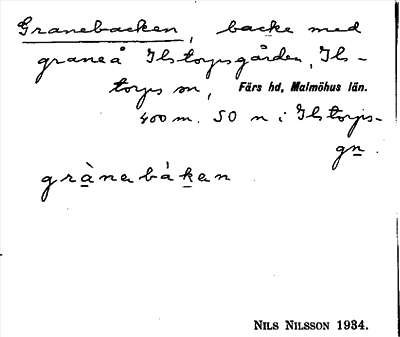 Granebacken, backe med
graneå Ilstorpsgården, Ils-
torps sn, Färs hd, Malmöhus län.
400 m. SO n i Ilstorps-
gn.
grànabákan
NILS NILSSON 1934.